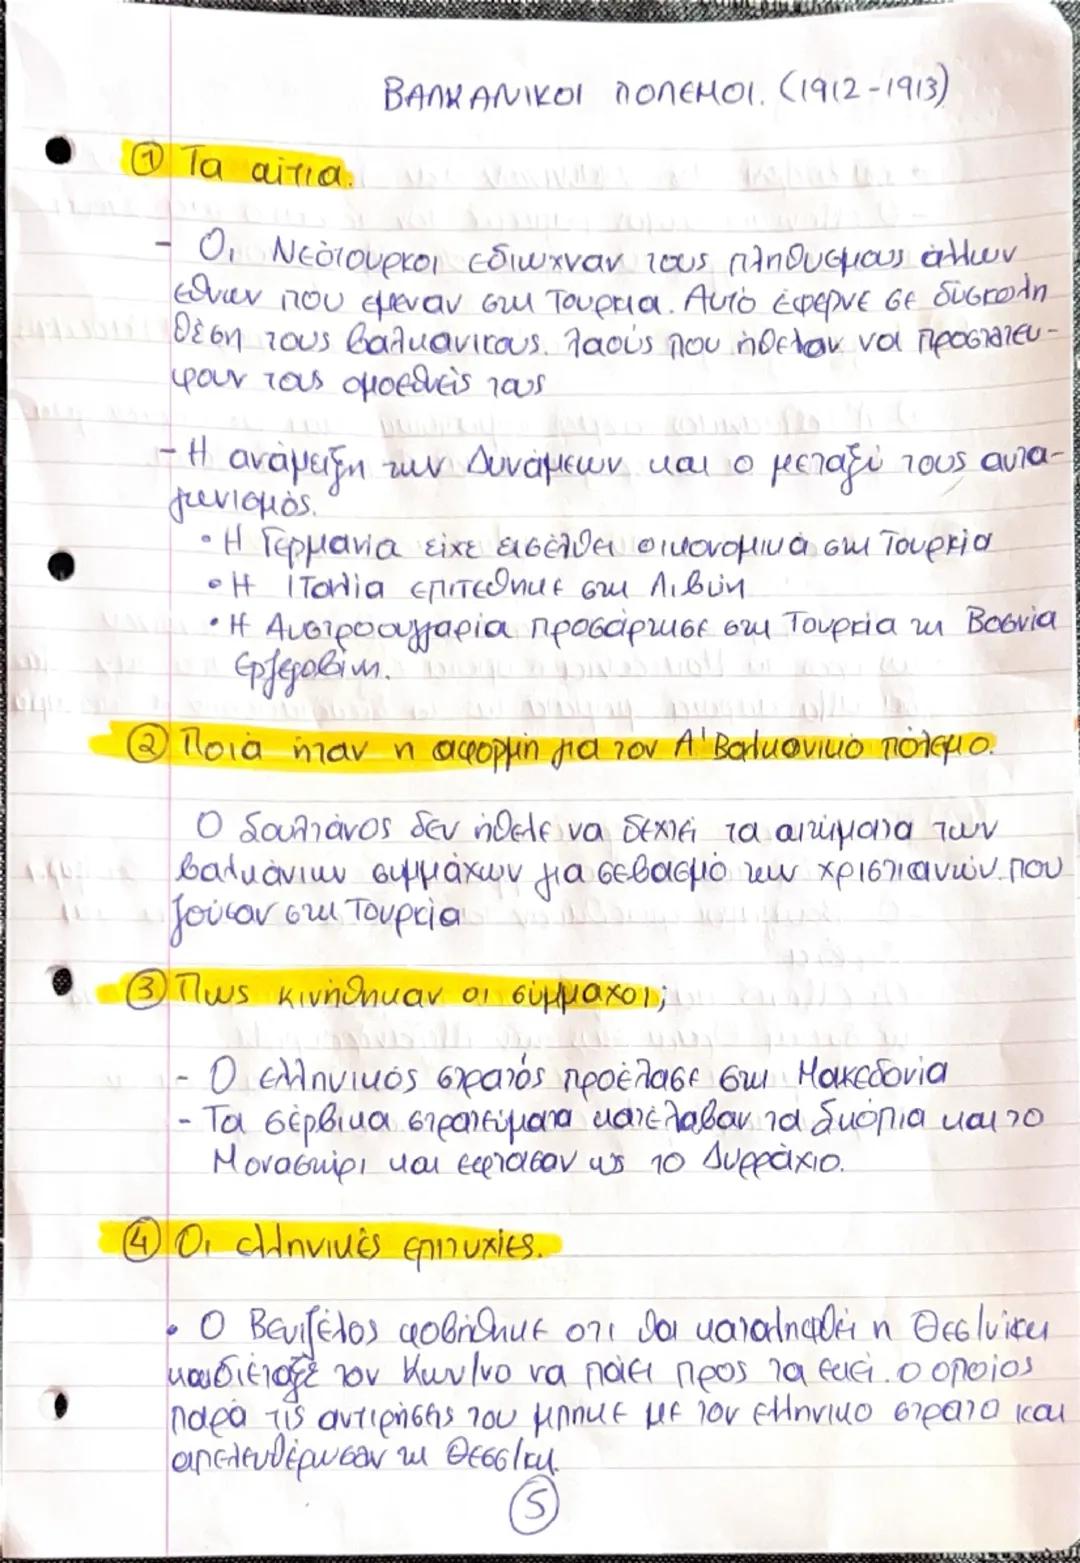 ΒΑΛΚΑΝΙΚΟΙ ΠΟΛΕΜΟΙ. (1912-1913)
① Τα αίτια.
- Οι Νεότουρκοι εδιωχναν τους πληθυσμους άλλων
εθνων που εμεναν στη Τουρκια. Αυτό έφερνε σε δύσκολη
θέση τους βαλκανικους. λαούς που ήθελαν να προστατεύ-
ψουν τους ομοεθνείς τους
- Η ανάμειξη των Δυνάμεων και ο μεταξύ τους αντα-
γωνισμός.
• Η Γερμανία είχε εισέλθει οικονομικά στη Τουρκία
• Η Ιταλία επιτέθηκε στη Λιβύη
• Η Αυστροουγγαρία προσάρτησε στη Τουρκία τη Βοσνία
Ερζεγοβίνη.
② Ποιά ήταν η αφορμή για τον Α' Βαλκανικό πόλεμο.
Ο Σουλτάνος δεν ήθελε να δεχτεί τα αιτήματα των
βαλκάνιων συμμάχων για σεβασμό των χριστιανών. που
ζούσαν στη Τουρκία
③ Πως κινήθηκαν οι σύμμαχοι;
- Ο ελληνικός στρατός προέλασε στη Μακεδονία
- Τα σέρβικα στρατεύματα κατέλαβαν τα Σκόπια και το
Μοναστήρι και εφτασαν ως το Δυρράχιο.
④ Οι ελληνικές επιτυχίες.
• Ο Βενιζέλος φοβήθηκε οτι θα καταληφθεί η Θεσ/νίκη
και διέταξε τον Κων/νο να πάει προς τα εκεί. ο οποίος
παρά τις αντιρήσεις του μπήκε με τον ελληνικο στρατο και
απελευθέρωσαν τη Θεσσ/κη.
⑤